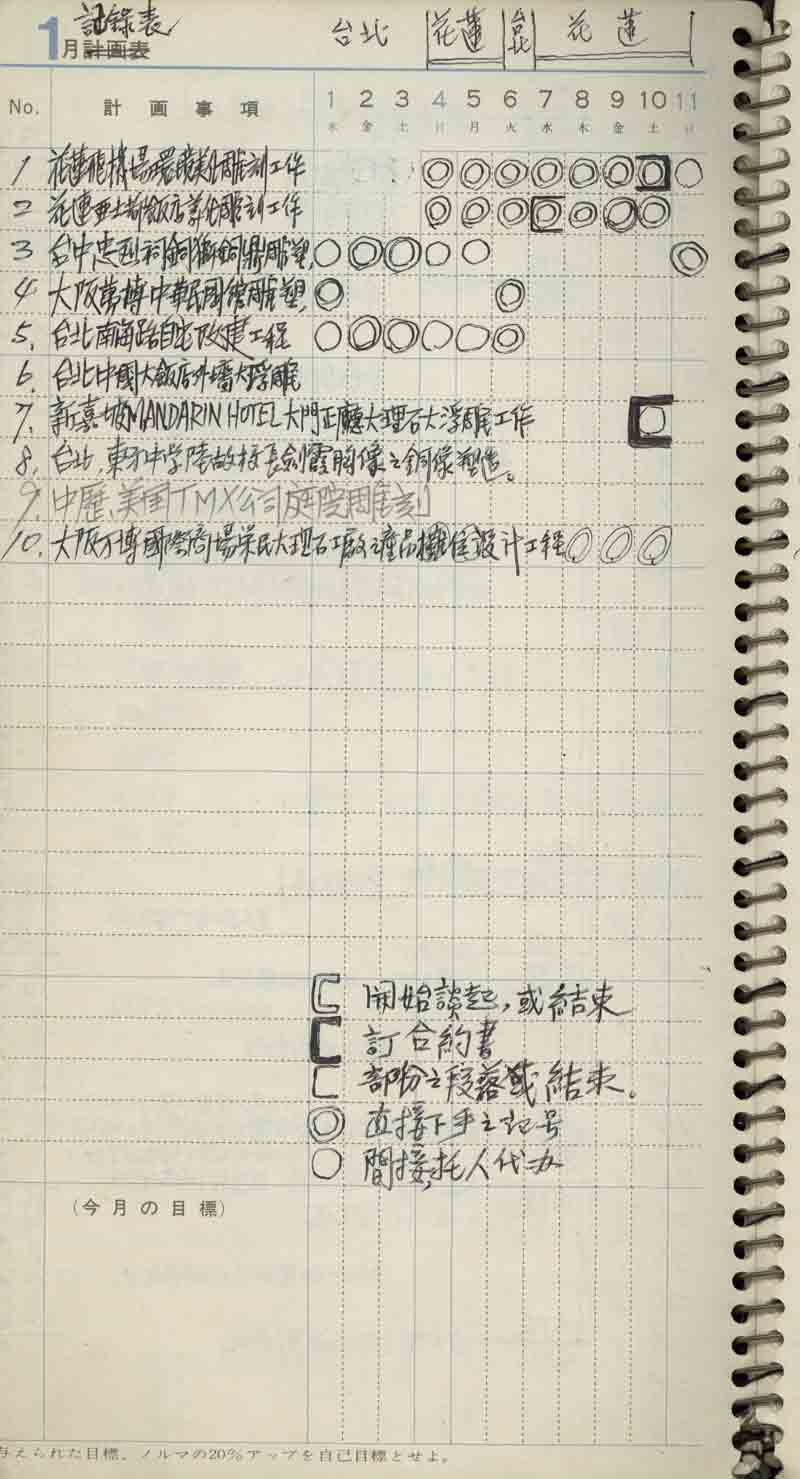 記錄表
1月計画表 台北 花蓮 台北 花蓮
No. 計画事項 1 2 3 4 5 6 7 8 9 10 11
木 金 土 日 月 火 水 木 金 土 日
1 花蓮飛機場環境美化雕刻工作
2 花蓮亞士都飯店美化雕刻工作
3 台中忠烈祠銅獅銅鼎雕塑.
4 大阪萬博中華民國館雕塑.
5. 台北南海路自宅改建工程
6. 台北中國大飯店外墻大浮雕
7. 新嘉坡MANDARIN HOTEL大門正廳大理石大浮雕工作
8. 台北.東方中学陸故校長劍霞胸像之銅像塑造。
9. 中壢.美国TMX公司庭院雕刻
10. 大阪万博國際商場榮民大理石工廠之產品攤位設计工程
開始談起,或結束
訂合約書
部份之段落或結束。
直接下手之記号
間接,托人代办
(今月の目標)
与えられた目標、ノルマの20%アップを自己目標とせよ。